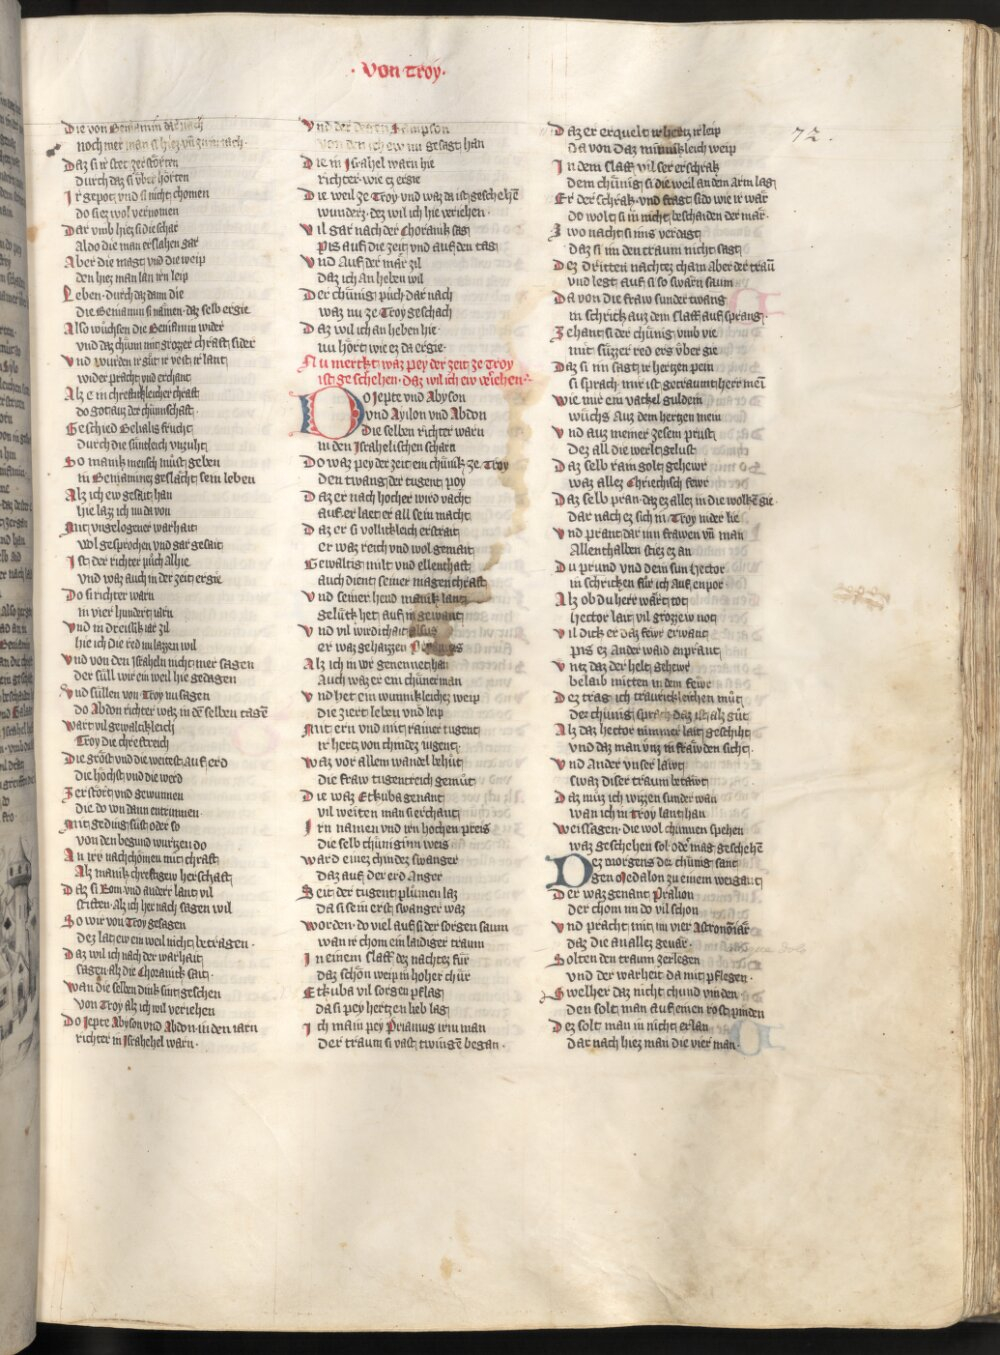 · Von Troy ·
72.
Die von Beniamin dar nach
noch mer man si hiez vn̄ zuin iach ·
Daz si ir stet zerstorten
durch daz si v̈ber hörten
Ir gepot vnd si nicht chomen
do si ez wol vernomen
Dar vmb hiez si die schar
Aldo die man erslahen gar
Aber die magt vnd die weip
den hiez man lan irn leip
Leben · durch daz dann die
die Beniamin si namen · daz selb ergie
Also wüchsen die Beniamin wider
vnd daz chüm mit grozzer chraft sider
Vnd wurden ir gůt ir vest ir lant
wider pracht vnd erchant
Alz ein chrestickleicher chraft
do got auz der chünschaft ·
Geschied Behalis frucht
durch die süntleich vnzuht
So manik mensch müst geben
in Beniamines geslächt sein leben
Alz ich ew gesait han
hie laz ich nu da von
Mit vngelogener warhait
wol gesprochen vnd gar gesait
Ist der richter půch alhie
vnd waz auch in der zeit ergie
Do si richter warn
in vier hundert iarn
Vnd in dreisik iar zil
hie ich die red nu lazzen wil
Vnd von den Israheln nicht mer sagen
der süll wir ein weil hie gedagen
Vnd süllen von Troy nu sagen
do Abdon richter waz in dē selben tagē
Wart vil gewaltikleich
Troy die chreftreich
Die gröst vnd die weitest auf erd
die höchst vnd die werd
Zerstort vnd gewunnen
die do wu dann entrunnen ·
Mit geding süst oder so
von den begund wurtzen do
An irr nachchomen mit chraft
Alz manik chreftgew herschaft
Daz si Rom vnd anderr lant vil
stiften · Alz ich her nach sagen wil
So wir von Troy gesagen
dez lat ew ein weil nicht betragen ·
Daz wil ich nach der warhait
sagen alz die Choranick sait ·
Wan die selben dink sint geschen
von Troy alz ich wil veriehen
Do Jepte Abyson vnd Abdon · in den iarn
richter in Israhel warn ·
Vnd der degen Sampson
von den ich ew nu gesagt han
Die in Israhel warn hie
richter · wie ez ergie
Die weil ze Troy vnd waz da ist geschehē
wunderz · dez wil ich hie veriehen ·
Vil gar nach der Choranik sag
pis auf die zeit vnd auf den tag
Vnd Auf der mär zil
daz ich an heben wil
Der chünig půch dar nach
waz nu ze Troy geschach
Daz wil ich an heben hie ·
nu hört wie ez da ergie ·
Nu merckt waz pey der zeit ze Troy
ist geschehen · daz wil ich ew veriehen ·
Do Jepte vnd Abyson
vnd Aylon vnd Abdon
Die selben richter warn
in den Israhelischen scharn
Do waz pey der zeit ein chünik ze Troy
den twang der tugent poy
Daz er nach hocher wird vacht
auf er laet er all sein macht
Daz er si vollikleich erstrait
er waz reich vnd wol gemait
Gewaltig milt vnd ellenthaft
auch dient seiner magenchraft
Vnd seiner hend manik lant
gelük het auf in gewant
Vnd vil wirdichait alsus
er waz gehaizzen Priamus
Alz ich in vor genennet han
Auch waz er ein chüner man
Vnd het ein wunnikleichez weip
die ziert leben vnd leip
Mit ern vnd mit rainer tugent
ir hertz von chindez iugent ·
Waz vor allem wandel behüt
die fraw tugentreich gemüt
Die waz Etkuba genant
vil weiten man si erchant
Irn namen vnd irn hochen preis
die selb chüniginn weis
Ward einez chindez swanger
daz auf der erd anger
Seit der tugent plümen laz
da si sein erst swanger waz
Worden · do viel auf si der sorgen saum
wan ir chom ein laidiger traum
In einem slaff dez nachtez für
daz schön weip in hoher chür
Etkuba vil sorgen pflag
da si pey hertzen lieb lag
Ich main pey Priamus irm man
der traum si vast twingē began ·
Daz er erquelt ir hertz ir leip
da von daz minnikleich weip
In dem slaff vil ser erschrak
dem chünig si die weil an dem arm lag
Er der schrak · vnd fragt si do wie ir wär
do wolt si in nicht beschaiden der mär ·
Zwo nacht si ims verdagt
daz si im den traum nicht sagt
Dez dritten nachtez cham aber der traū
vnd legt auf si so swärn saum
Da von die fraw sunder twang
in schrick auz dem slaff auf sprang ·
Zehant si der chünig vmb vie
mit süzzer red ers v̈ber gie
Daz si im sagt ir hertzen pein
si sprach · mir ist getraumt herr mein
Wie mir ein vackel guldein
wüchs auz dem hertzen mein
Vnd auz meiner zesem prust
dez all die werlt gelust
Daz selb ram golt gehewr
waz allez Chriechisch fewr
Daz selb pran · daz ez allez in die wolkē gie
dar nach ez sich in Troy nider lie
Vnd prant dar inn frawen vn̄ man
Allenthalben stiez ez an
Du prund vnd dein sun Hector
in schricken für ich auf enpor
Alz ob du herr wärt tot
Hector lait vil grozzew not
Vil dick er daz fewr erwant
pis ez ander waid enprant
Vntz daz der helt gehewr
belaib mitten in dem fewr
Dez trag ich traurickleichen můt
der chünig sprach daz ist alz güt
Alz daz Hector nimmer lait geschiht
vnd daz man vnz in fräwden sicht ·
Vnd ander vnser lawt
swaz diser traum betäwt
Daz müz ich wizzen sunder wan
wan ich in Troy lant han
Weissagen · die wol chünnen spehen
waz geschehen sol oder mag geschehē
Dez morgens der chünig sant
gen Medalon zu einem weigant
Der waz genant Pralion
der chom im do vil schon
Vnd pracht mit im vier Astronomiär
daz die an allez geuär ·
Solten den traum zerlegen
vnd der warheit da mit pflegen ·
Swelher daz nicht chund vinden
den solt man auf einen rost pinden
Dez solt man in nicht erlan
dar nach hiez man die vier man ·